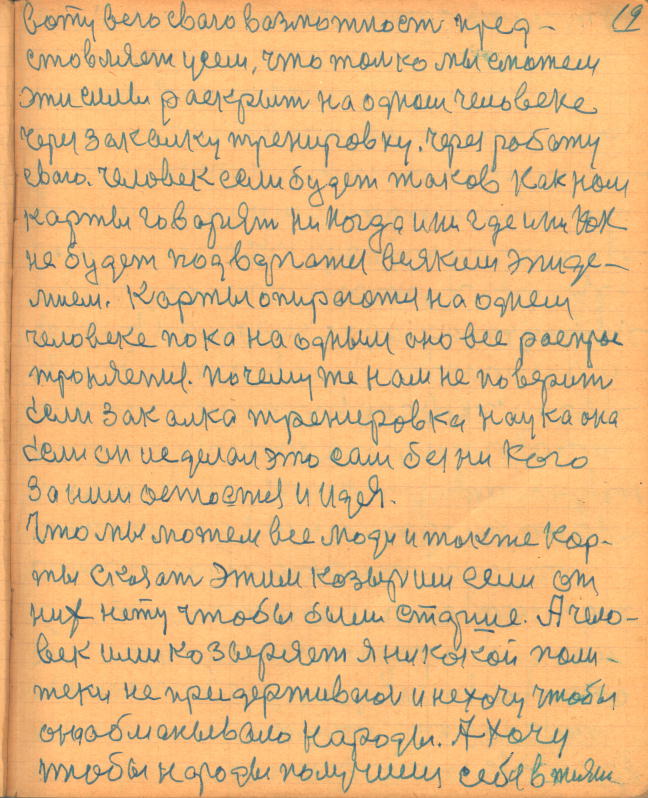 19
боту всего сваго возможност пред-
стовляет усем, что толко мы сможем
эти силы раскрыт на одном человеке
через закалку тренировку. через работу
сваю. Человек если будет таков как нам
карты говорият ни когда или где или как
не будет подвергатся всяким эпиде-
мием. Карты опираются на однем
человеке пока на одным оно все распрос
тронлется. почему же нам не поверит
если закалка тренировка наука она
если он не делал это сам без ни кого
за ним остается и идея.
Что мы можем все люди и также кар-
ты сказат этим козырим если от
них нету чтобы были старше. А чело-
век или козверяет я ни какой поли-
теки не придерживаюсь и не хочу чтобы
она обманывала народы. А хочу
чтобы народы получили себе в жизни